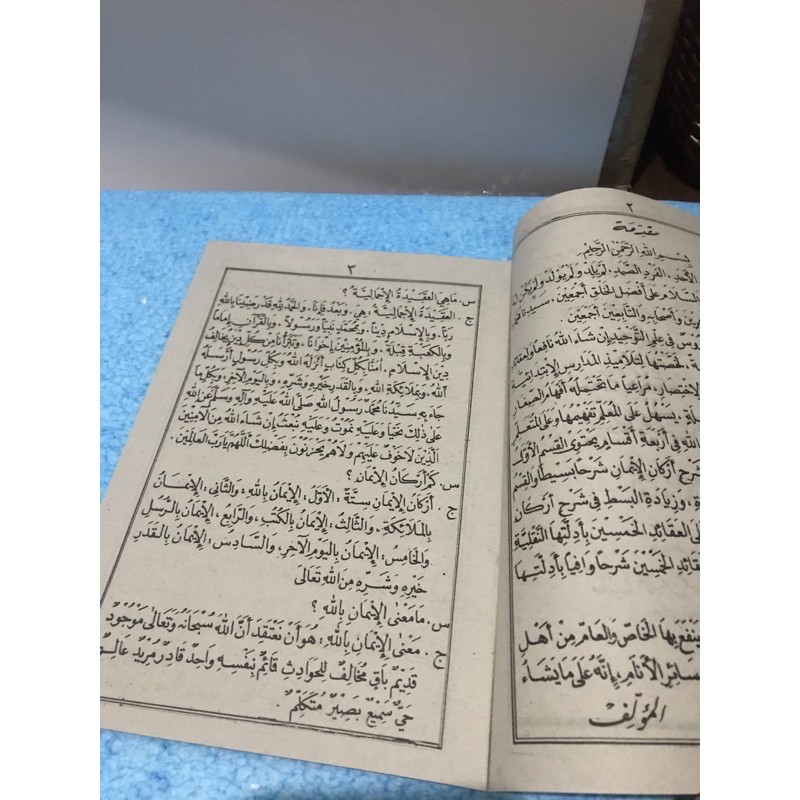 ٢
مقدمة
بسم الله الرحمن الرحيم
الأحد، الفرد الصمد، لم يلد ولم يولد ولم يكن له
السلام على أفضل الخلق أجمعين، سيدنا محمد
وأصحابه والتابعين أجمعين
دروس في علم التوحيد إن شاء الله نافعة
لخصتها لتلاميذ المدارس الابتدائية
الاختصار، مراعيا ما تتحمله أفهام الصغار
يسهل على المعلم تفهيمها وعلى المتعلم
الله في أربعة أقسام يحتوى القسم الأول
شرح أركان الإيمان شرحا بسيطا والقسم
وزيادة البسط في شرح أركان
العقائد الخمسين بأدلتها النقلية
عقائد الخمسين شرحا وافيا بأدلتها
ينفع بها الخاص والعام من أهل
سائر الأنام، إنه على ما يشاء
المؤلف
٣
س. ما هي العقيدة الإجمالية؟
ج. العقيدة الإجمالية: هي. وبعد فإنا. والحمد لله قد رضينا بالله
ربا، وبالإسلام دينا، وبمحمد نبيا ورسولا، وبالقرآن إماما
وبالكعبة قبلة، وبالمؤمنين إخوانا، وتبرأنا من كل دين يخالف
دين الإسلام. آمنا بكل كتاب أنزله الله وبكل رسول أرسله
الله، وبملائكة الله، وبالقدر خيره وشره، وباليوم الآخر، وبكل ما
جاء به سيدنا محمد رسول الله صلى الله عليه وآله وسلم عن الله
على ذلك نحيا وعليه نموت وعليه نبعث إن شاء الله من الآمنين
الذين لا خوف عليهم ولا هم يحزنون بفضلك اللهم يا رب العالمين.
س. كم أركان الإيمان؟
ج. أركان الإيمان ستة: الأول: الإيمان بالله، والثاني: الإيمان
بالملائكة، والثالث: الإيمان بالكتب، والرابع، الإيمان بالرسل
والخامس: الإيمان باليوم الآخر، والسادس: الإيمان بالقدر
خيره وشره من الله تعالى
س. ما معنى الإيمان بالله؟
ج. معنى الإيمان بالله: هو أن نعتقد أن الله سبحانه وتعالى موجود
قديم باق مخالف للحوادث قائم بنفسه واحد قادر مريد عالم
حي سميع بصير متكلم.